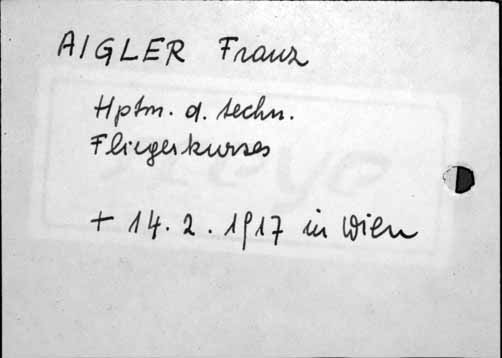 AIGLER Franz
Hptm. d. techn.
Fliegerkurses
+ 14. 2. 1917 in Wien